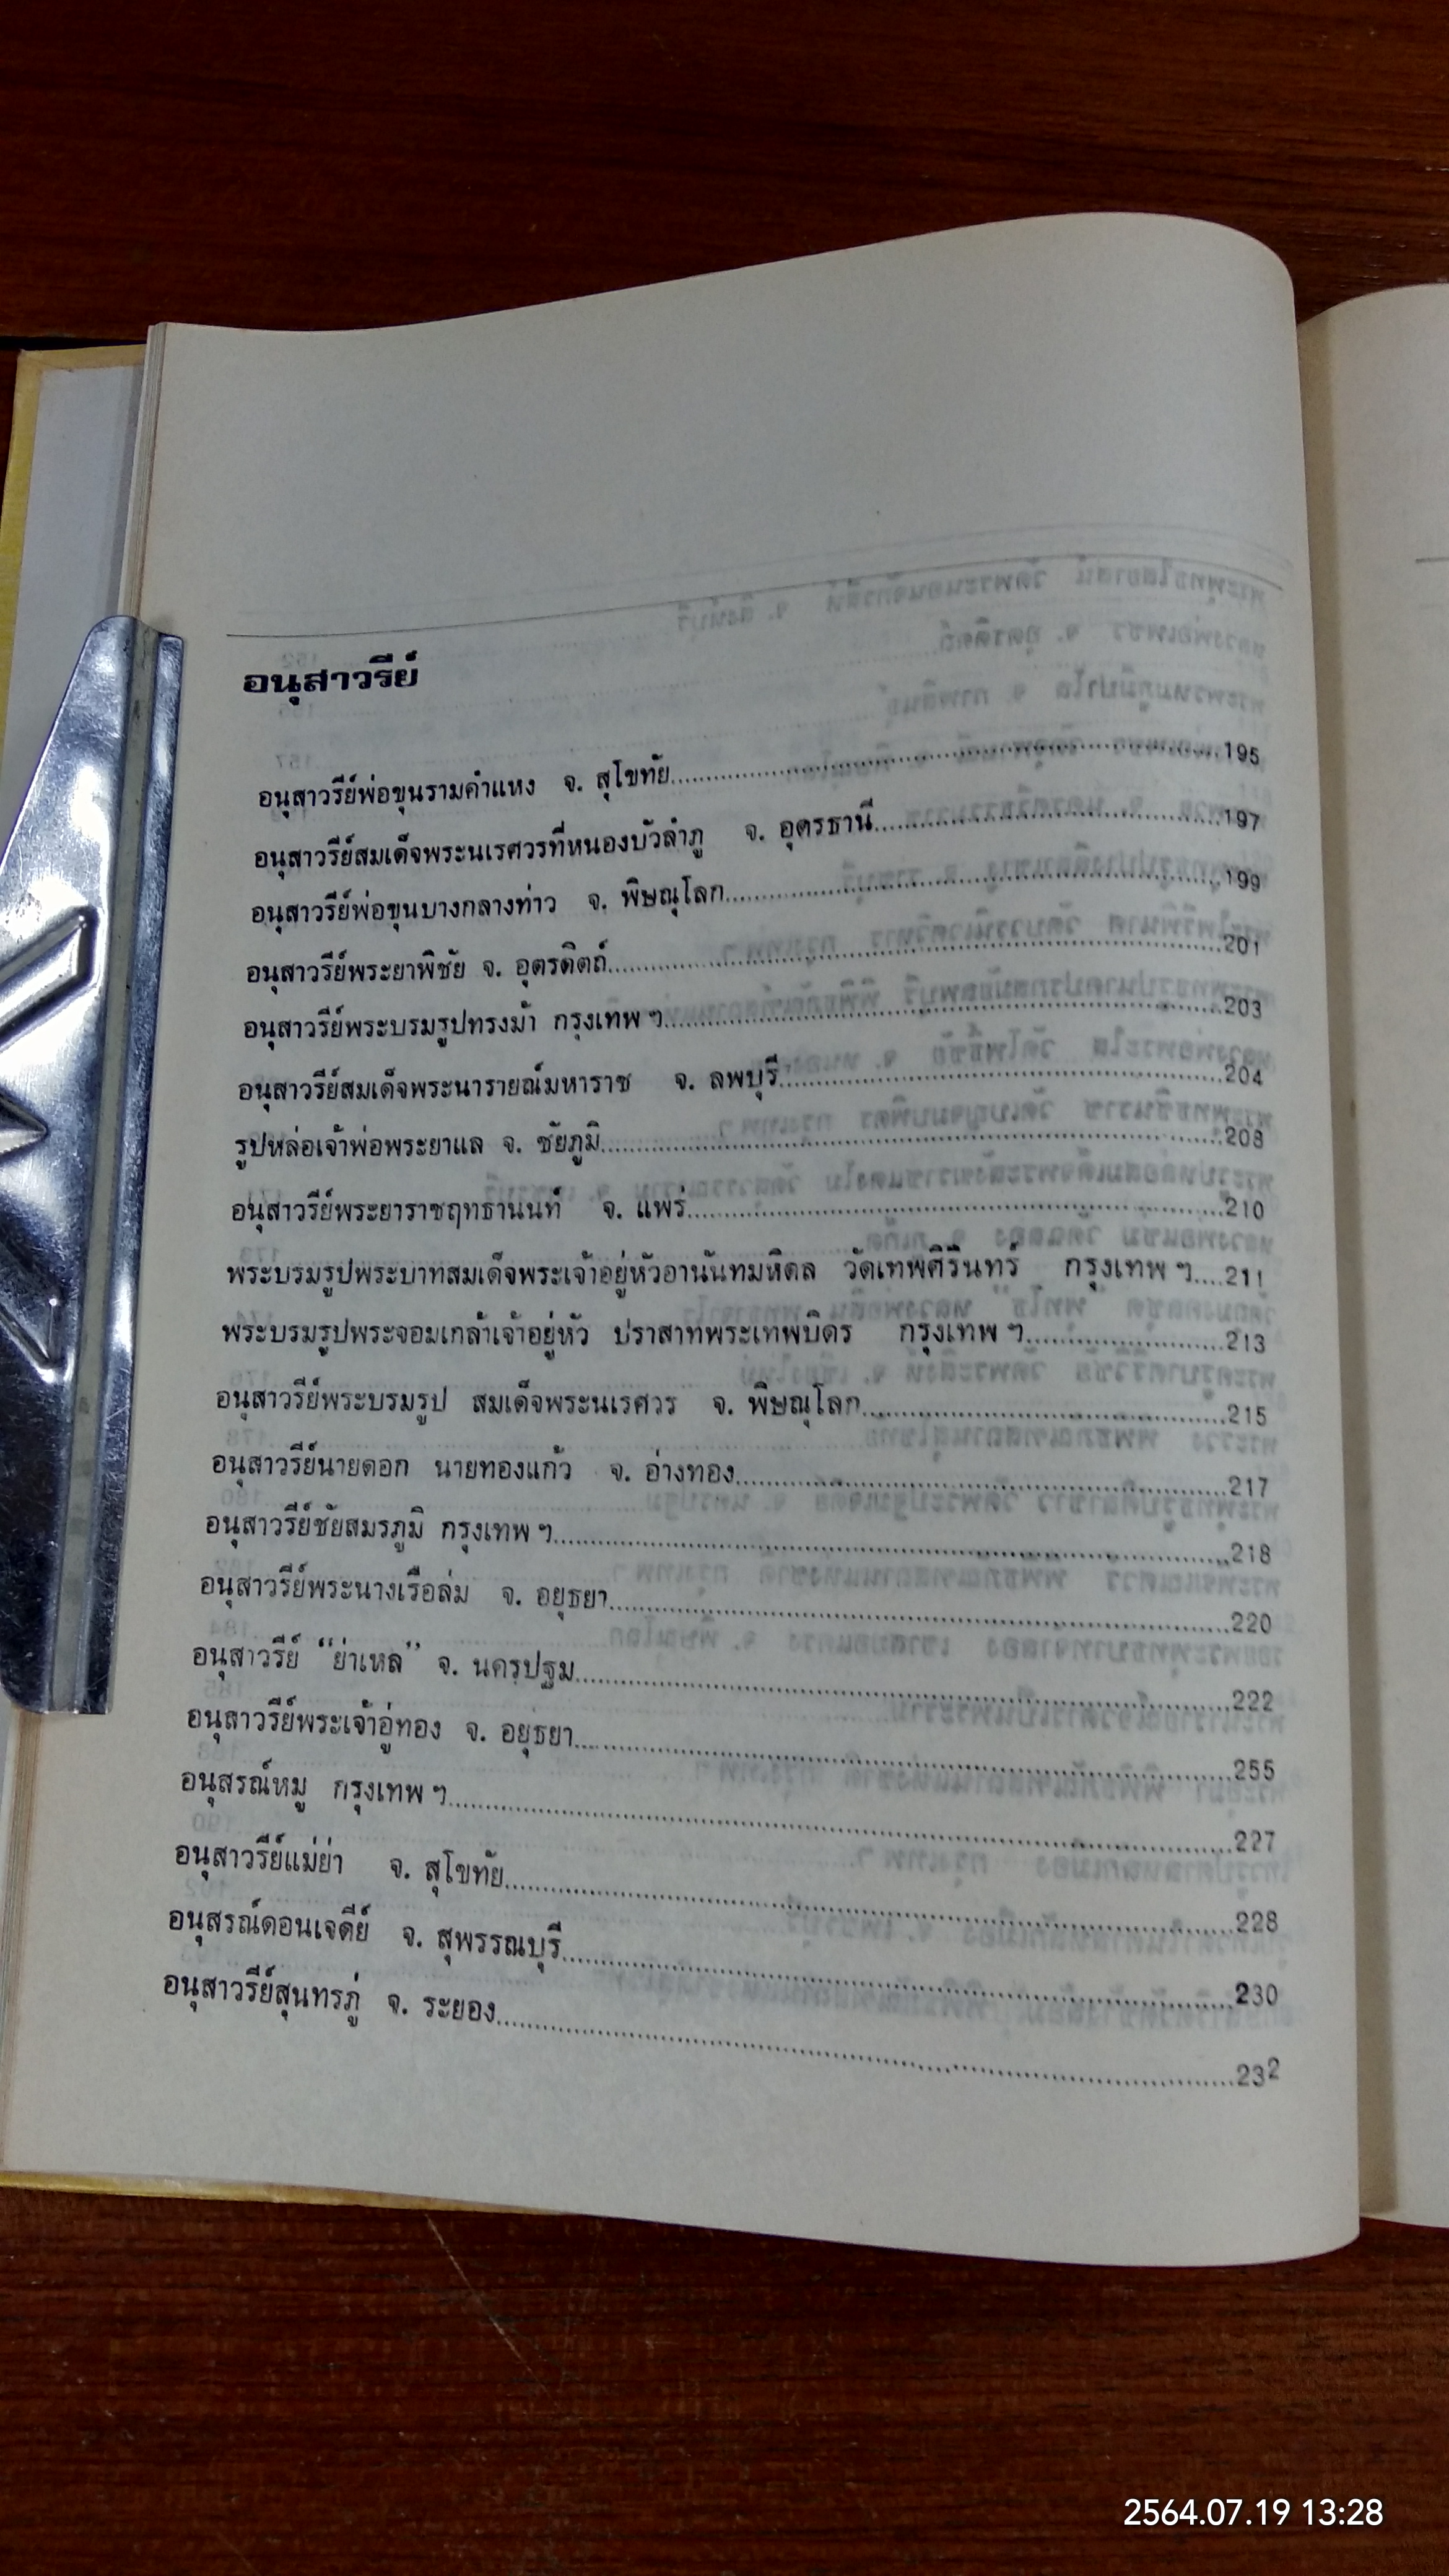 อนุสาวรีย์
อนุสาวรีย์พ่อขุนรามคำแหง จ. สุโขทัย....................195
อนุสาวรีย์สมเด็จพระนเรศวรที่หนองบัวลำภู จ. อุดรธานี....................197
อนุสาวรีย์พ่อขุนบางกลางท่าว จ. พิษณุโลก....................199
อนุสาวรีย์พระยาพิชัย จ. อุตรดิตถ์....................201
อนุสาวรีย์พระบรมรูปทรงม้า กรุงเทพ ฯ....................203
อนุสาวรีย์สมเด็จพระนารายณ์มหาราช จ. ลพบุรี....................204
รูปหล่อเจ้าพ่อพระยาแล จ. ชัยภูมิ....................208
อนุสาวรีย์พระยาราชฤทธานนท์ จ. แพร่....................210
พระบรมรูปพระบาทสมเด็จพระเจ้าอยู่หัวอานันทมหิดล วัดเทพศิรินทร์ กรุงเทพ ฯ....211
พระบรมรูปพระจอมเกล้าเจ้าอยู่หัว ปราสาทพระเทพบิดร กรุงเทพ ฯ....................213
อนุสาวรีย์พระบรมรูป สมเด็จพระนเรศวร จ. พิษณุโลก....................215
อนุสาวรีย์นายดอก นายทองแก้ว จ. อ่างทอง....................217
อนุสาวรีย์ชัยสมรภูมิ กรุงเทพ ฯ....................218
อนุสาวรีย์พระนางเรือล่ม จ. อยุธยา....................220
อนุสาวรีย์ “ย่าเหล” จ. นครปฐม....................222
อนุสาวรีย์พระเจ้าอู่ทอง จ. อยุธยา....................255
อนุสรณ์หมู กรุงเทพ ฯ....................227
อนุสาวรีย์แม่ย่า จ. สุโขทัย....................228
อนุสรณ์ดอนเจดีย์ จ. สุพรรณบุรี....................230
อนุสาวรีย์สุนทรภู่ จ. ระยอง....................232
2564.07.19 13:28